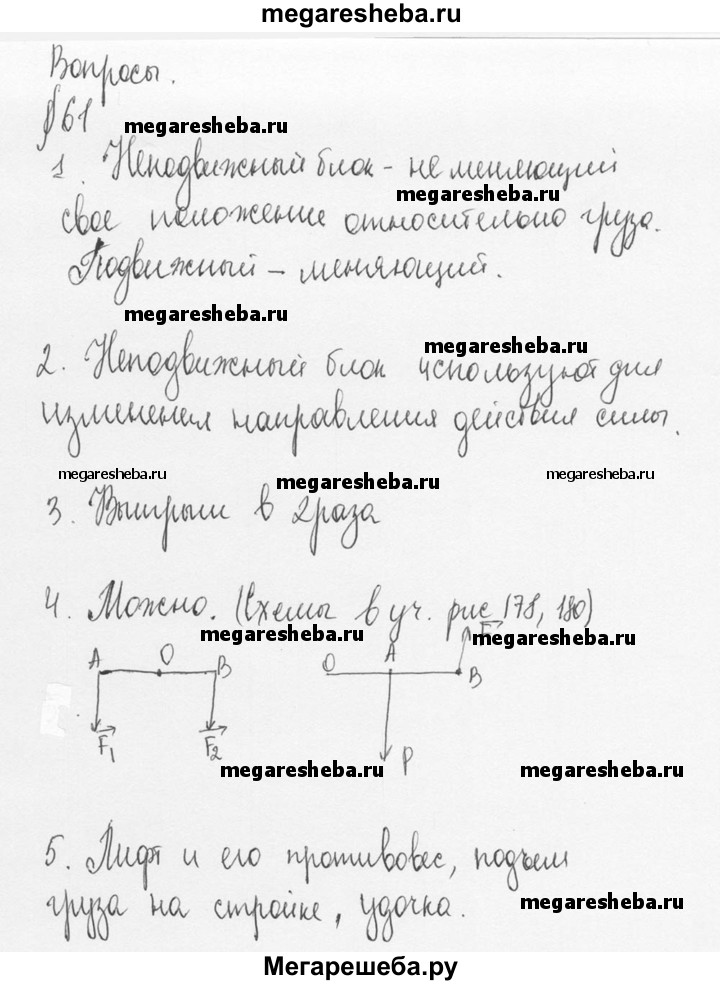 megaresheba.ru
Вопросы.
§61
megaresheba.ru
1. Неподвижный блок - не меняющий
megaresheba.ru
свое положение относительно груза.
Подвижный - меняющий.
megaresheba.ru
megaresheba.ru
2. Неподвижный блок используют для
изменения направления действия силы.
megaresheba.ru megaresheba.ru megaresheba.ru
3. Выигрыш в 2 раза
4. Можно. (Схемы в уч. рис 178, 180)
megaresheba.ru megaresheba.ru
A O B O A B F
F1 F2 P
megaresheba.ru megaresheba.ru
5. Лифт и его противовес, подъем
груза на стройке, удочка.
megaresheba.ru
Мегарешеба.ру